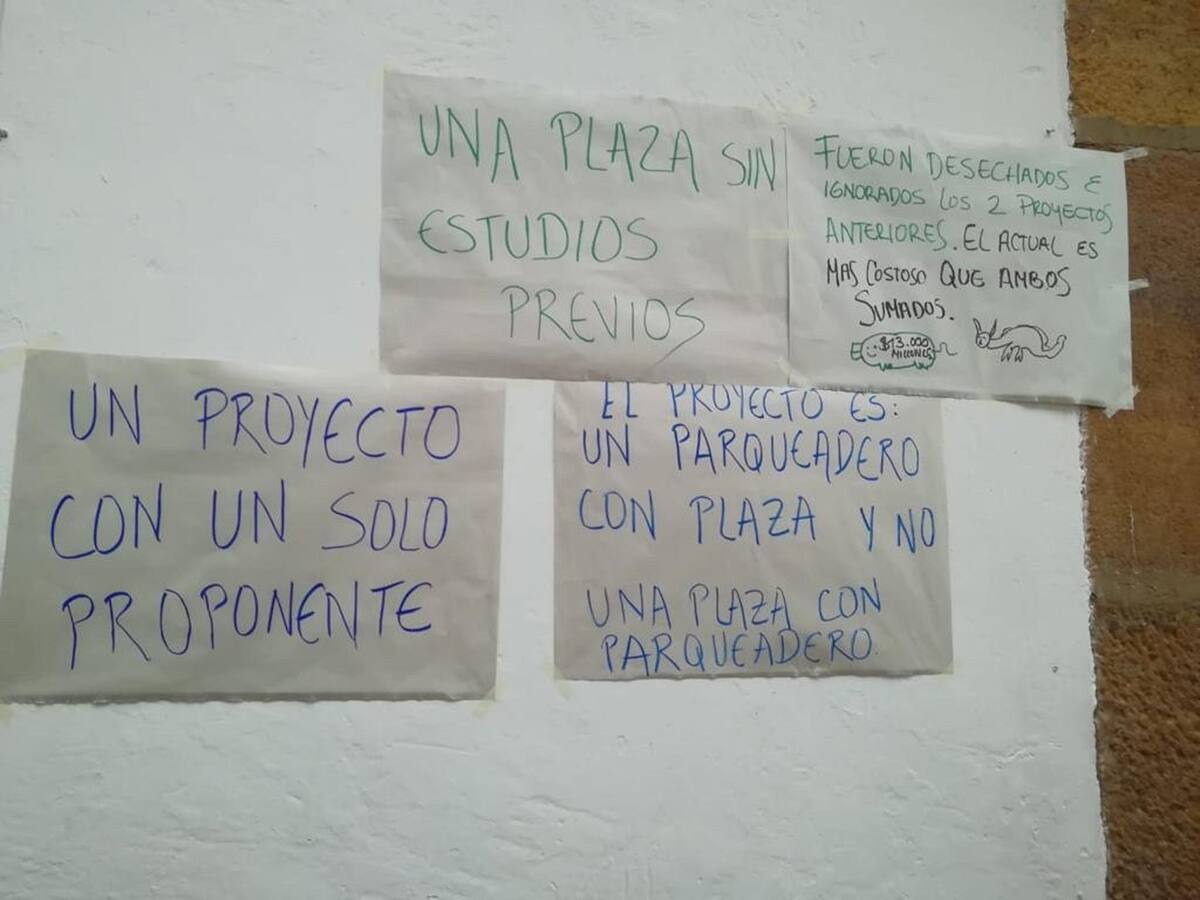 UNA PLAZA SIN
ESTUDIOS
PREVIOS
FUERON DESECHADOS E
IGNORADOS LOS 2 PROYECTOS
ANTERIORES. EL ACTUAL ES
MAS COSTOSO QUE AMBOS
SUMADOS.
$13.000
MILLONES
UN PROYECTO
CON UN SOLO
PROPONENTE
EL PROYECTO ES:
UN PARQUEADERO
CON PLAZA Y NO
UNA PLAZA CON
PARQUEADERO.